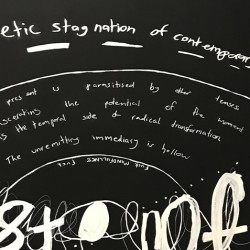 etic stagnation of contempora
present is parasitised by other tenses
scerating the potential of the moment
is the temporal side of radical transformation
The unremitting immediacy is hollow